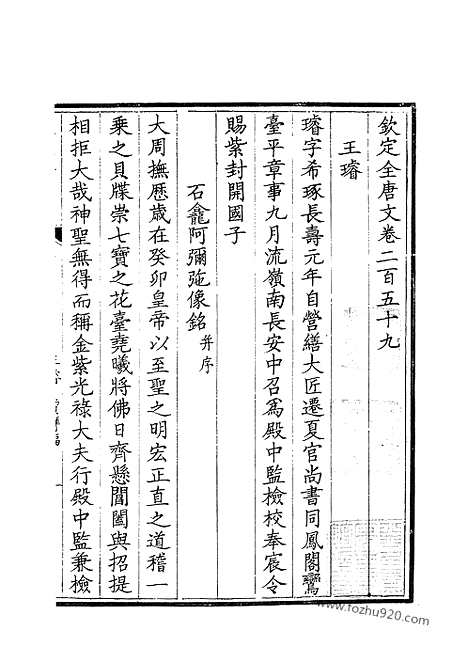 欽定全唐文卷二百五十九
王璿
璿字希琢長壽元年自營繕大匠遷夏官尚書同鳳閣鸞
臺平章事九月流嶺南長安中召爲殿中監檢校奉宸令
賜紫封開國子
石龕阿彌陁像銘并序
大周撫歷歳在癸卯皇帝以至聖之明宏正直之道稽一
乘之貝牒崇七寶之花臺堯曦將佛日齊懸閶闔與招提
相拒大哉神聖無得而稱金紫光祿大夫行殿中監兼檢
www.fozhu920.com